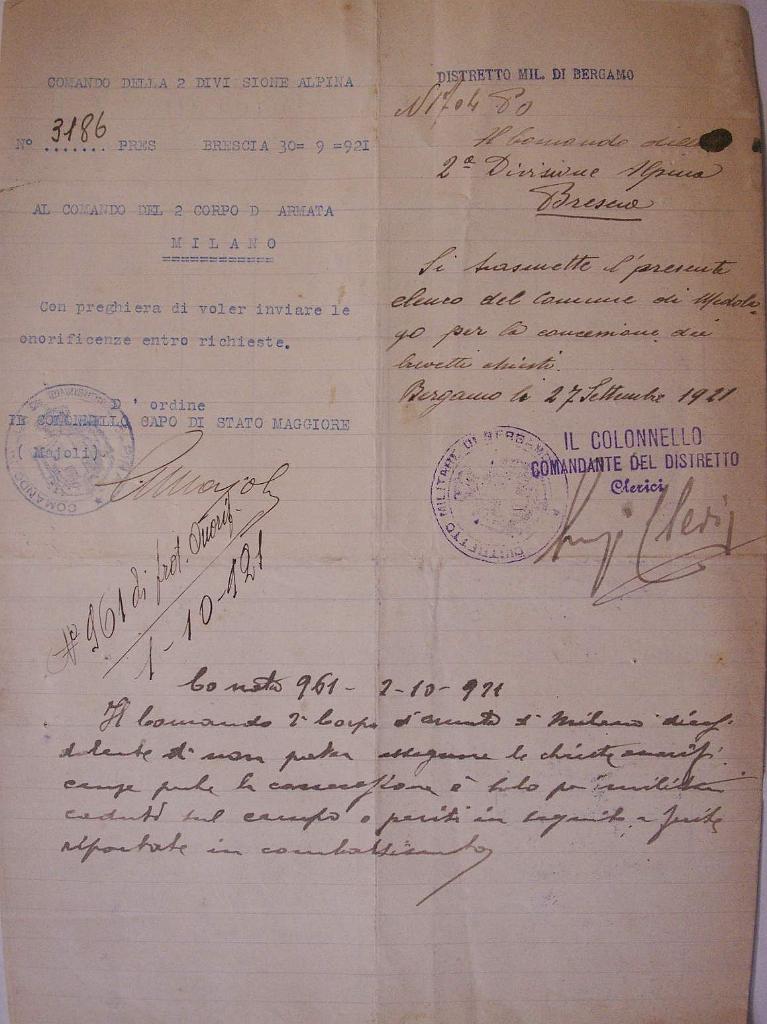 COMANDO DELLA 2 DIVISIONE ALPINA
Nº 3186 PRES BRESCIA 30= 9 =921
AL COMANDO DEL 2 CORPO D ARMATA
MILANO
============
Con preghiera di voler inviare le
onorificenze entro richieste.
D' ordine
IL COLONNELLO CAPO DI STATO MAGGIORE
( Majoli)
Nº 961 di prot. Onorif.
1-10-921
DISTRETTO MIL. DI BERGAMO
Nº 1704 Po
Il Comando della
2ª Divisione Alpina
Brescia
Si trasmette l' presente
elenco del Comune di Medola-
go per la concessione dei
brevetti chiesti.
Bergamo li 27 Settembre 1921
IL COLONNELLO
COMANDANTE DEL DISTRETTO
Clerici
DISTRETTO MILITARE DI BERGAMO
Luigi Clerici
Co nota 961 - 2-10-921
Il Comando 2º Corpo d'armata di Milano
dolente di non poter assegnare le chieste onorifi
cenze la concessione è solo per militari
caduti sul campo o periti in seguito a ferite
riportate in combattimento